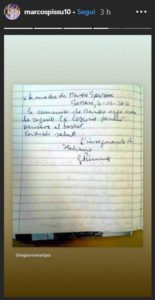 marcospissu10 • Segui 3 h
Alla madre di Marco Spissu
Sassari,
si comunica che Marco oggi non
ha seguito la lezione perché
pensava al basket.
Cordiali saluti
L'insegnante di
Italiano
@lagiornatatipo